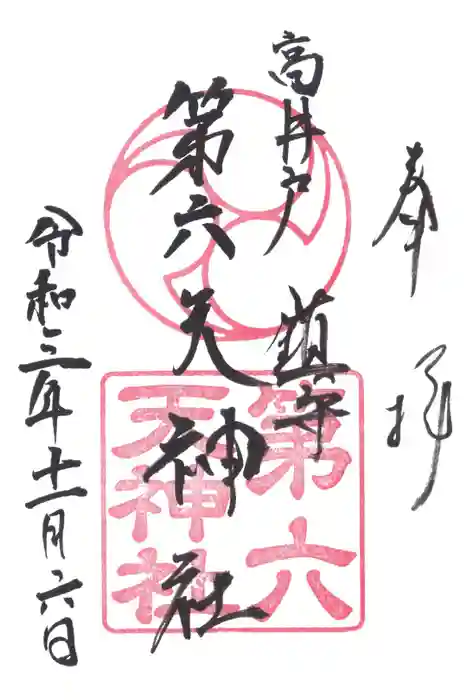 奉拝
高井戸 鎮守
第六天神社
令和三年十一月六日
第六
天神社